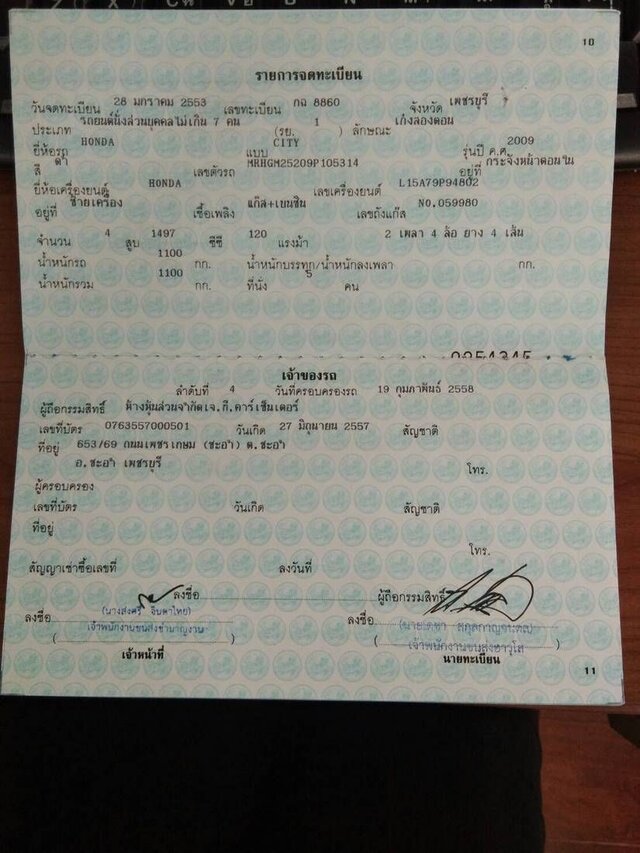 10
รายการจดทะเบียน
วันจดทะเบียน 28 มกราคม 2553 เลขทะเบียน กฉ 8860 จังหวัด เพชรบุรี
ประเภท รถยนต์นั่งส่วนบุคคลไม่เกิน 7 คน (รย. 1 ) ลักษณะ เก๋งสองตอน
ยี่ห้อรถ HONDA แบบ CITY รุ่นปี ค.ศ. 2009
สี ดำ เลขตัวรถ MRHGM25209P105314 อยู่ที่ กระจังหน้าตอนใน
ยี่ห้อเครื่องยนต์ HONDA เลขเครื่องยนต์ L15A79P94802
อยู่ที่ ซ้ายเครื่อง เชื้อเพลิง แก๊ส+เบนซิน เลขถังแก๊ส NO.059980
จำนวน 4 สูบ 1497 ซีซี 120 แรงม้า 2 เพลา 4 ล้อ ยาง 4 เส้น
น้ำหนักรถ 1100 กก. น้ำหนักบรรทุก/น้ำหนักลงเพลา กก.
น้ำหนักรวม 1100 กก. ที่นั่ง 5 คน
เจ้าของรถ
ลำดับที่ 4 วันที่ครอบครองรถ 19 กุมภาพันธ์ 2558
ผู้ถือกรรมสิทธิ์ ห้างหุ้นส่วนจำกัดเจ.ที.คาร์เซ็นเตอร์
เลขที่บัตร 0763557000501 วันเกิด 27 มิถุนายน 2557 สัญชาติ
ที่อยู่ 653/69 ถนนเพชรเกษม (ชะอำ) ต.ชะอำ
อ.ชะอำ เพชรบุรี โทร.
ผู้ครอบครอง
เลขที่บัตร วันเกิด สัญชาติ
ที่อยู่
โทร.
สัญญาเช่าซื้อเลขที่ ลงวันที่
ลงชื่อ ผู้ถือกรรมสิทธิ์
ลงชื่อ ลงชื่อ
เจ้าพนักงานขนส่งชำนาญงาน
เจ้าพนักงานขนส่งอาวุโส
เจ้าหน้าที่ นายทะเบียน
11